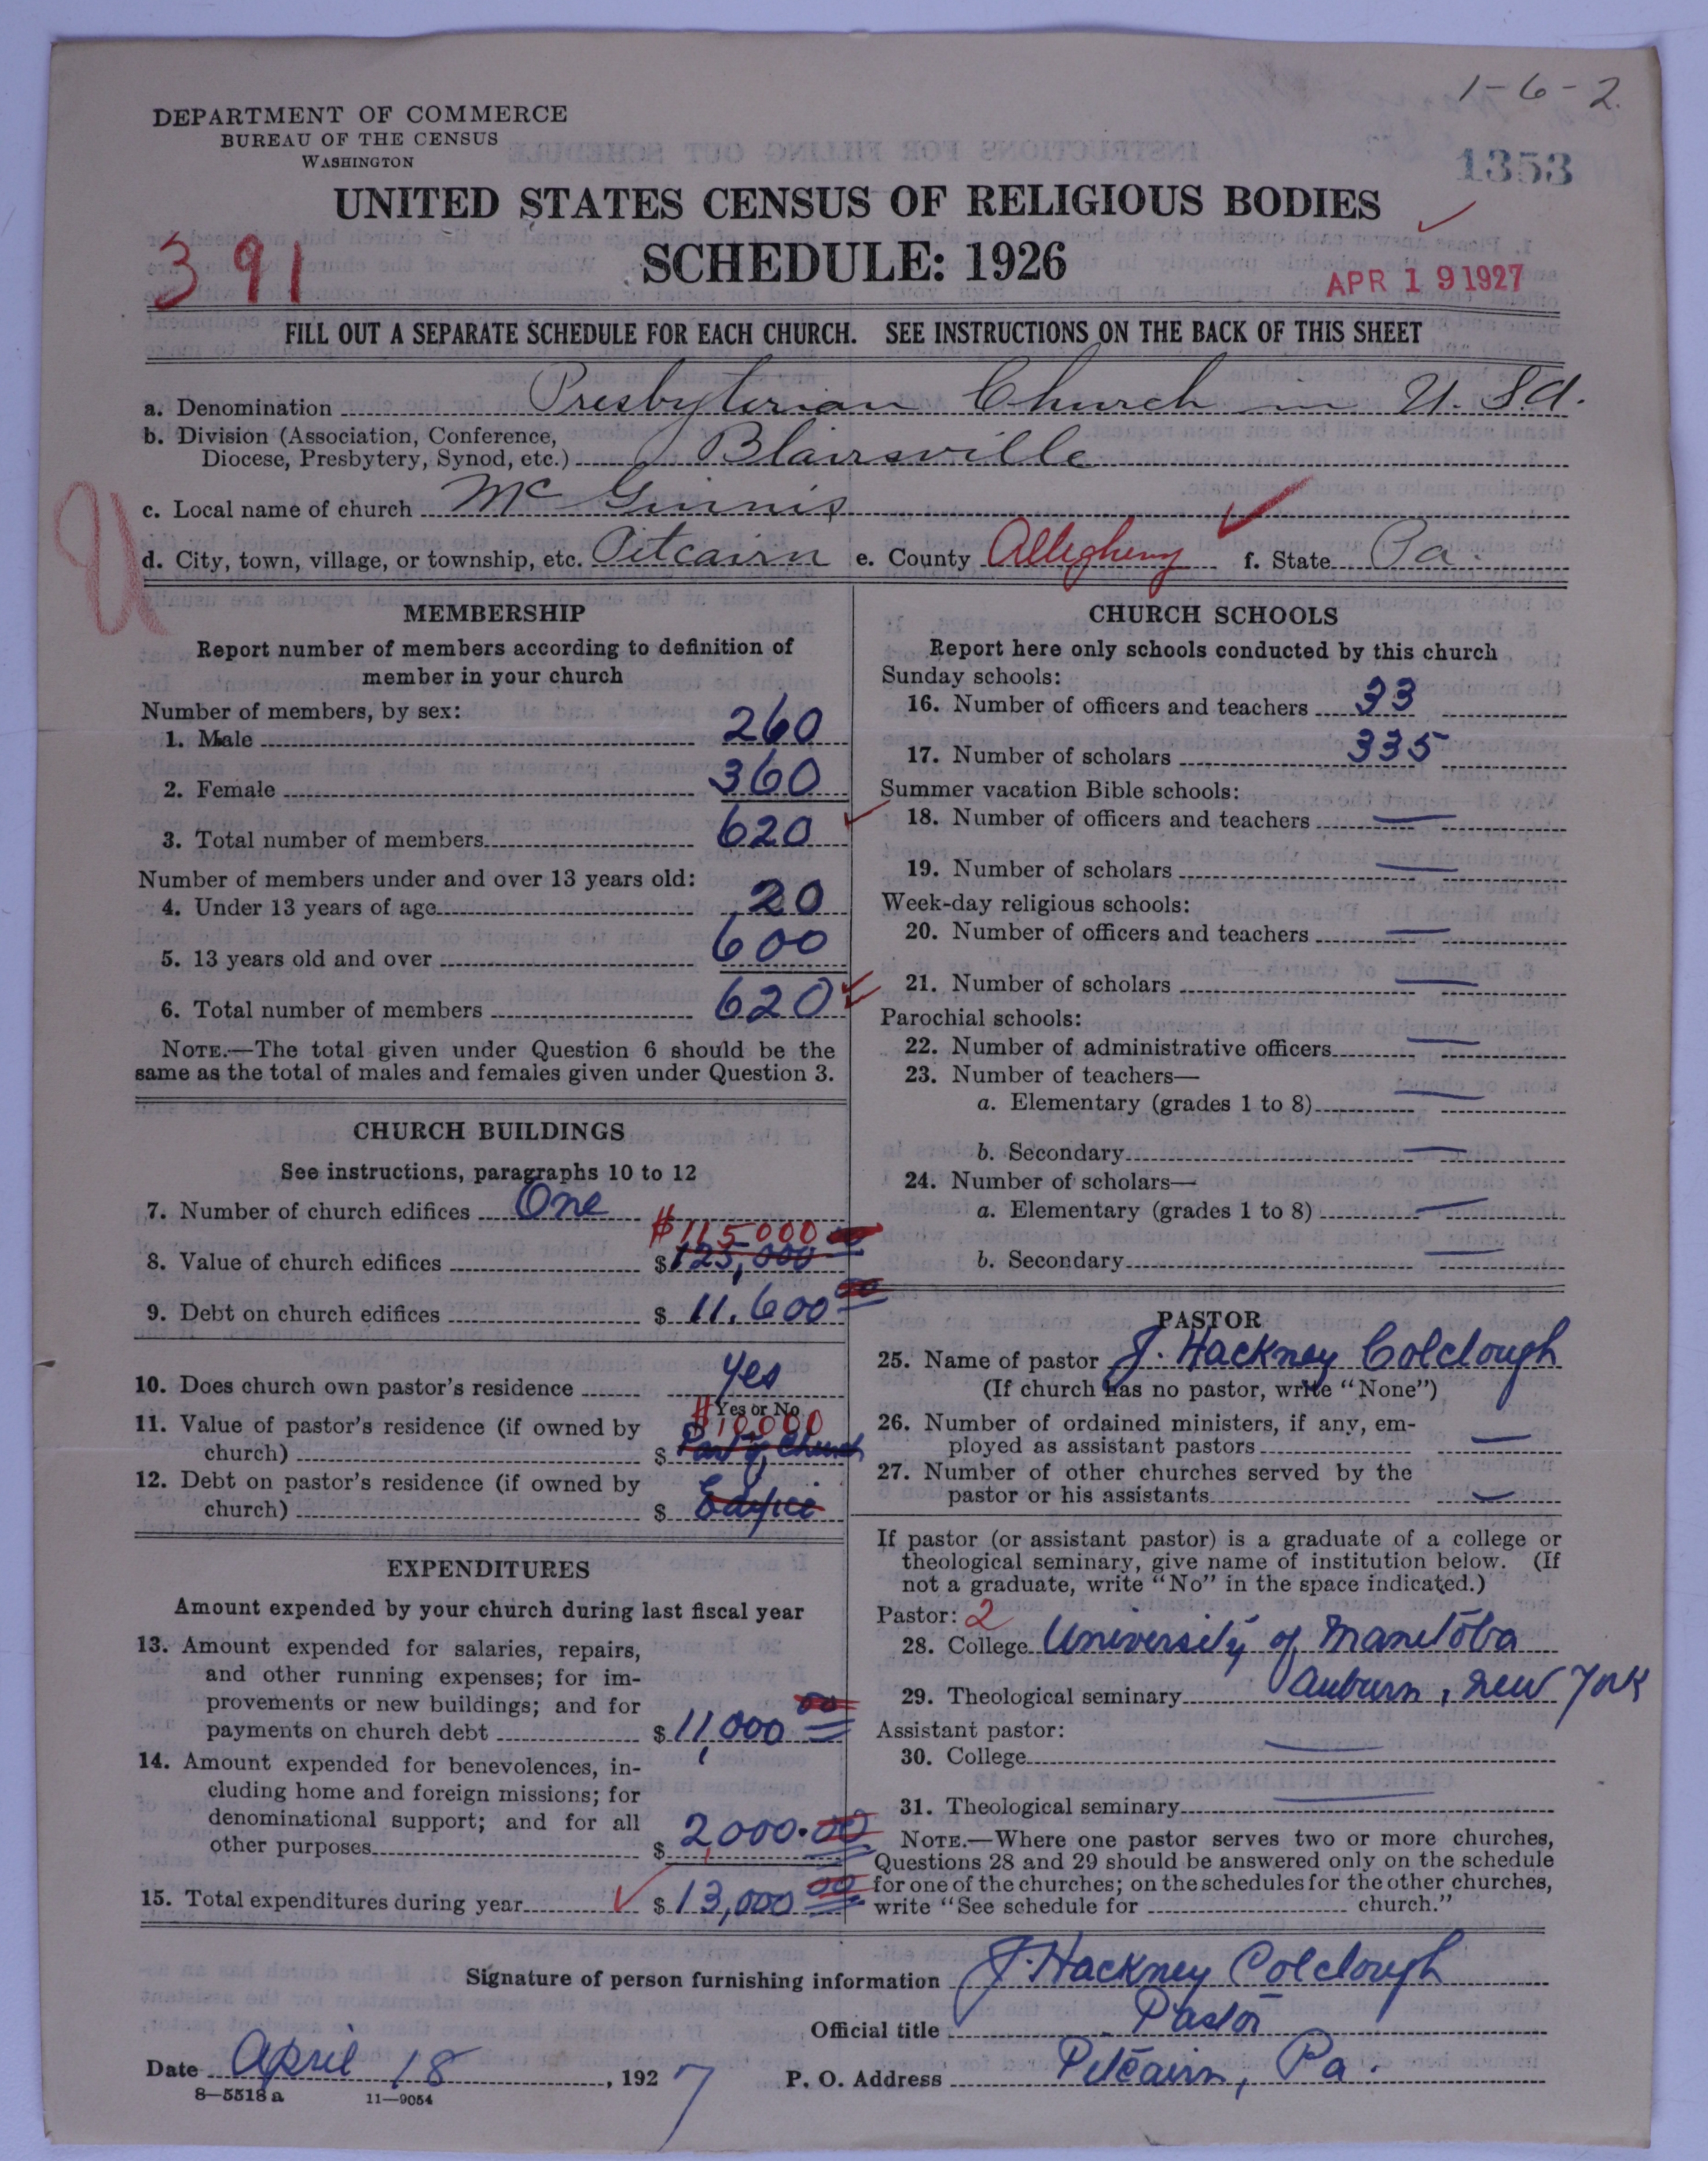 1-6-2
DEPARTMENT OF COMMERCE
BUREAU OF THE CENSUS
WASHINGTON
1353
UNITED STATES CENSUS OF RELIGIOUS BODIES
SCHEDULE: 1926
391
APR 19 1927
FILL OUT A SEPARATE SCHEDULE FOR EACH CHURCH. SEE INSTRUCTIONS ON THE BACK OF THIS SHEET
a. Denomination Presbyterian Church in U.S.A.
b. Division (Association, Conference,
Diocese, Presbytery, Synod, etc.) Blairsville
c. Local name of church McGinnis
U
d. City, town, village, or township, etc. Pitcairn e. County Allegheny f. State Pa.
MEMBERSHIP
Report number of members according to definition of
member in your church
Number of members, by sex:
1. Male 260
2. Female 360
3. Total number of members 620
Number of members under and over 13 years old:
4. Under 13 years of age 20
5. 13 years old and over 600
6. Total number of members 620
NOTE.—The total given under Question 6 should be the
same as the total of males and females given under Question 3.
CHURCH BUILDINGS
See instructions, paragraphs 10 to 12
7. Number of church edifices One
$115000
8. Value of church edifices $125,000
9. Debt on church edifices $ 11,600 00
10. Does church own pastor's residence Yes
Yes or No
$10000
11. Value of pastor's residence (if owned by
church) $ Part of Church
12. Debt on pastor's residence (if owned by
church) $ Edifice
EXPENDITURES
Amount expended by your church during last fiscal year
13. Amount expended for salaries, repairs,
and other running expenses; for im-
provements or new buildings; and for
payments on church debt $11,000 00
14. Amount expended for benevolences, in-
cluding home and foreign missions; for
denominational support; and for all
other purposes $ 2,000.00
15. Total expenditures during year $13,000 00
CHURCH SCHOOLS
Report here only schools conducted by this church
Sunday schools:
16. Number of officers and teachers 33
17. Number of scholars 335
Summer vacation Bible schools:
18. Number of officers and teachers —
19. Number of scholars —
Week-day religious schools:
20. Number of officers and teachers —
21. Number of scholars —
Parochial schools:
22. Number of administrative officers —
23. Number of teachers—
a. Elementary (grades 1 to 8) —
b. Secondary —
24. Number of scholars—
a. Elementary (grades 1 to 8) —
b. Secondary —
PASTOR
25. Name of pastor J. Hackney Colclough
(If church has no pastor, write "None")
26. Number of ordained ministers, if any, em-
ployed as assistant pastors —
27. Number of other churches served by the
pastor or his assistants —
If pastor (or assistant pastor) is a graduate of a college or
theological seminary, give name of institution below. (If
not a graduate, write "No" in the space indicated.)
Pastor: 2
28. College University of Manitoba
29. Theological seminary Auburn, New York
Assistant pastor:
30. College —
31. Theological seminary —
NOTE.—Where one pastor serves two or more churches,
Questions 28 and 29 should be answered only on the schedule
for one of the churches; on the schedules for the other churches,
write "See schedule for church."
Signature of person furnishing information J. Hackney Colclough
Official title Pastor
Date April 18, 1927 P. O. Address Pitcairn, Pa.
8—5518 a 11—9054